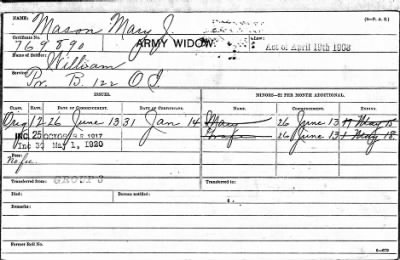 NAME: Mason Mary J. (3-P. A. G.)
Certificate No. Law:
769890 ARMY WIDOW. Act of April 19th 1908
Name of Soldier:
William
Service:
Pvt. B. 122 O I
ISSUES. MINORS—$2 PER MONTH ADDITIONAL.
CLASS. RATE. DATE OF COMMENCEMENT. DATE OF CERTIFICATE. NAME. COMMENCEMENT. ENDING.
Orig 12 26 June 13 31 Jan 14 Mary 26 June 13 May
INC 25 OCTOBER 1917 26 June 13 May 18
Inc 30 May 1, 1920
Fees:
No fee
Transferred from: GROUP 3 Transferred to:
Died: Bureau notified:
Remarks:
Former Roll No.